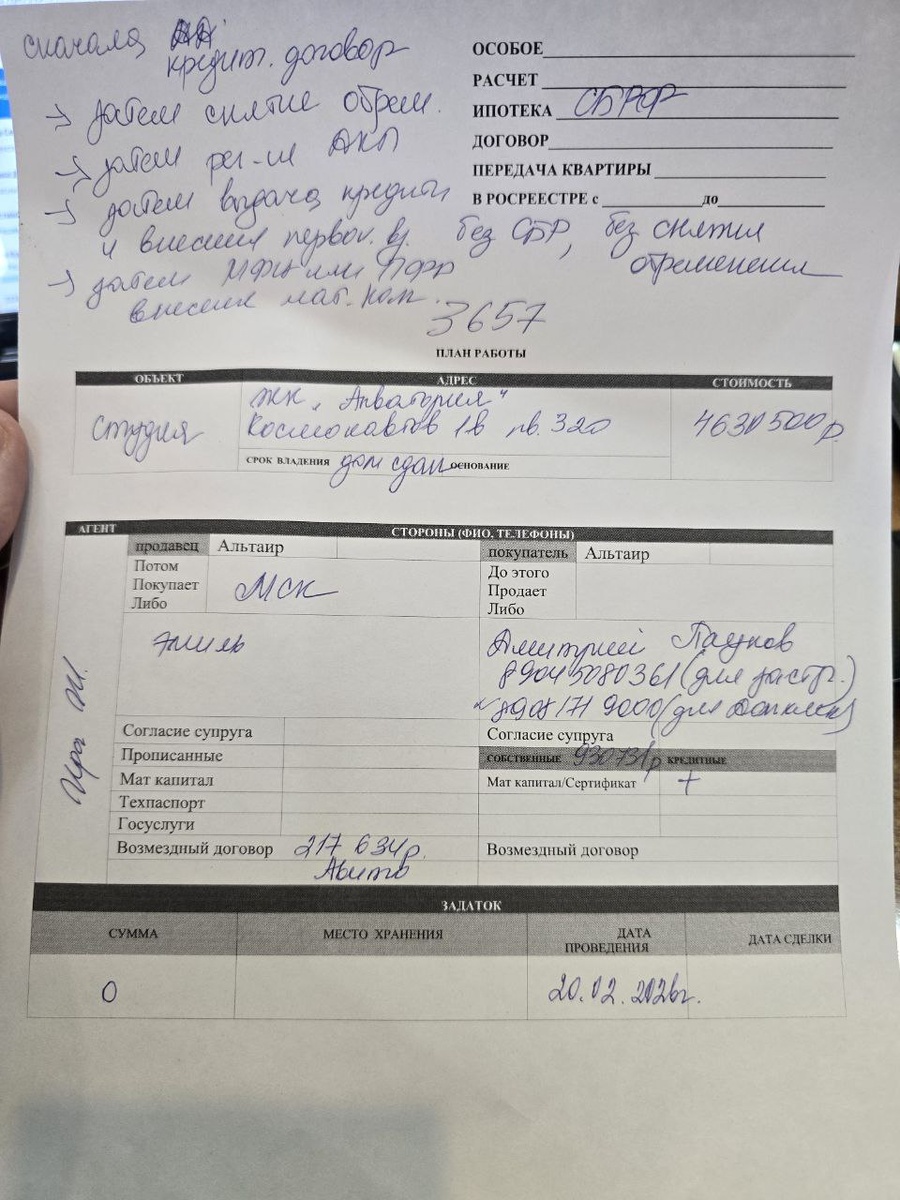 сначала
кредит. договор
→ затем снятие обрем.
→ затем рег-ии ДКП
→ затем выдача кредита
и внесения первон. вз.
→ затем МФЦ или ПФР
внесение мат. кап.
ОСОБОЕ
РАСЧЕТ
ИПОТЕКА СБРФ
ДОГОВОР
ПЕРЕДАЧА КВАРТИРЫ
В РОСРЕЕСТРЕ с до
без СБР, без снятия
обременения
3657
ПЛАН РАБОТЫ
ОБЪЕКТ АДРЕС СТОИМОСТЬ
Студия
ЖК "Акватория"
Космонавтов 1в кв. 320
4630500р
СРОК ВЛАДЕНИЯ дом сдан ОСНОВАНИЕ
АГЕНТ СТОРОНЫ (ФИО, ТЕЛЕФОНЫ)
продавец Альтаир
Потом
Покупает
Либо
МСК
Эмиль
покупатель Альтаир
До этого
Продает
Либо
Дмитрий
8904 5080361 (для застр.)
8908 171 9000 (для
Ира
Согласие супруга
Прописанные
Мат капитал
Техпаспорт
Госуслуги
Возмездный договор 217 634р.
Авито
Согласие супруга
СОБСТВЕННЫЕ 930731р КРЕДИТНЫЕ
Мат капитал/Сертификат +
Возмездный договор
ЗАДАТОК
СУММА МЕСТО ХРАНЕНИЯ ДАТА ПРОВЕДЕНИЯ ДАТА СДЕЛКИ
0 20.02.2026г.